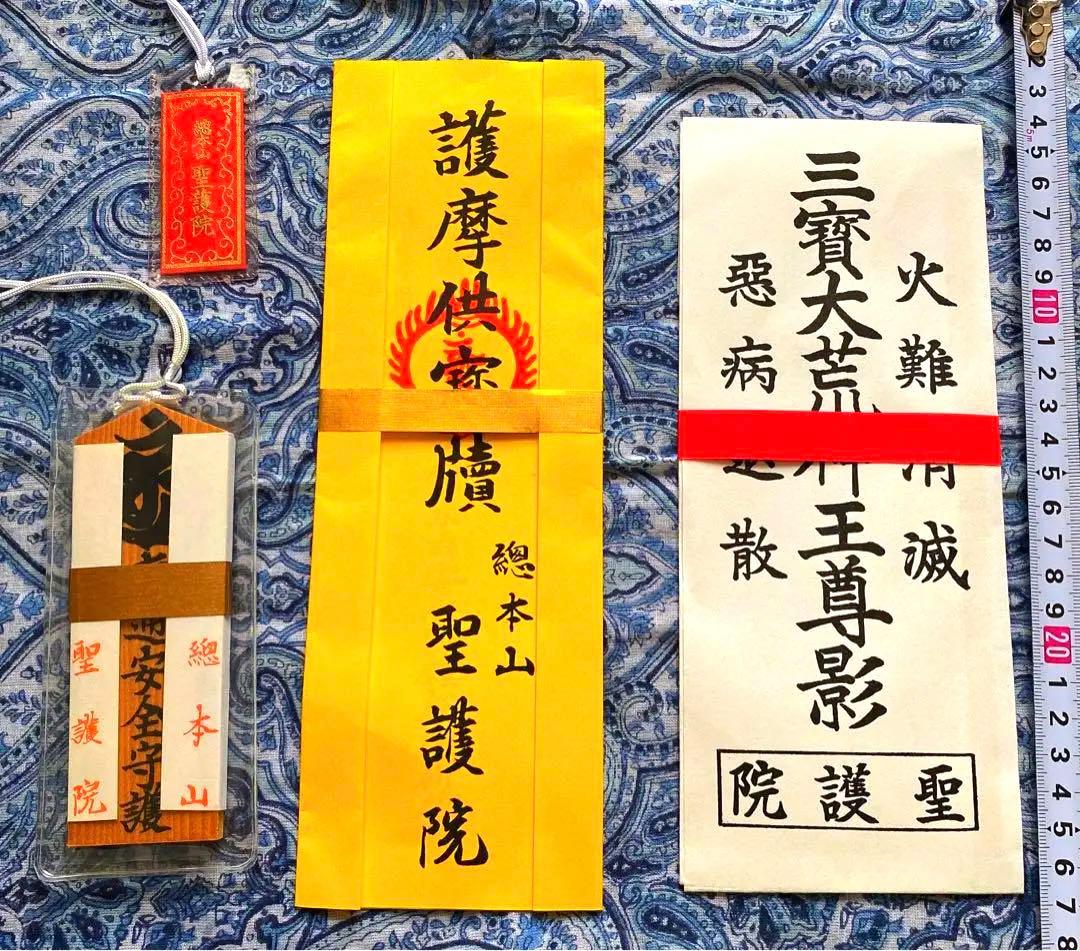 總本山
聖護院
交通安全守護
總本山
聖護院
護摩供寶牘
總本山
聖護院
火難消滅
三寶大荒神王尊影
惡病退散
聖護院
2
3
4
5m
5
6
7
8
9
10
1
2
3
4
5
6
7
8
9
20
1
2
3
4
5
6
7
8